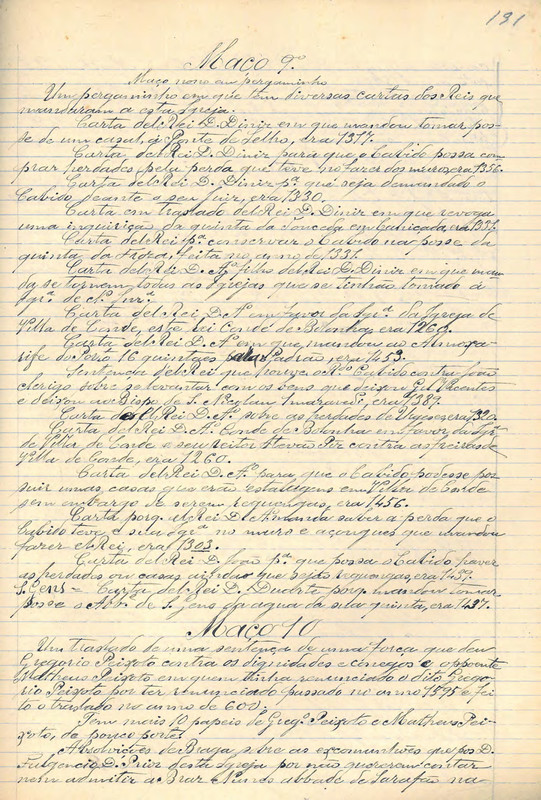 131
Maço 9º
Maço novo em pergaminho
Um pergaminho em que têm diversas cartas dos Reis que
mandaram a esta Igreja.
Carta del Rei D. Diniz em que mandou tomar pos-
se de um casal, á Ponte de Celho, era 1317.
Carta del Rei D. Diniz para que o Cabido possa com
prar herdades pela perda que teve no fazer dos muros, era 1356.
Carta del Rei D. Diniz pª que seja demandado o
Cabido peante o seu juiz, era 1330.
Carta em traslado del Rei D. Diniz em que revoga
uma inquirição da quinta da
Carta del Rei pª conservar o Cabido na posse da
quinta da feita no anno de 1331.
Carta del Rei D. Aº filho del Rei D. Diniz em que man
da se tornem todas as Igrejas que se tinhão tomado á
Igrª de Nª Snrª.
Carta del Rei D. Aº em favor da Igrª da Igreja de
Villa de Conde, este rei Conde de Bolonha, era 1260.
Carta del Rei D. Aº em que mandou ao Almoxa-
rife do Porto 16 quintaes Padrão, era 1453.
Sentença del Rei que houve o Rº Cabido contra João
clerigo sobre se levantar com os bens que deixou Gil Vicentes
e deixou ao Bispo de S. era 1389.
Carta del Rei D. Aº sobre as herdades de era 1320.
Carta del Rei D. Aº Conde de Bolonha em favor da Igrª
de Villa de Conde e seu reitor Estevão Piz contra as freiras de
Villa de Conde, era 1260.
Carta del Rei D. Aº para que o Cabido podesse pos
suir umas casas que erão estalagens em Villa de Conde
sem embargo de serem reguengas, era 1456.
Carta porq. el Rei D. Aº manda saber a perda que o
Cabido teve e sua Igrª no muro e açougues que mandou
fazer el Rei, era 1303.
Carta del Rei D. João pª que possa o Cabido haver
as herdades ou casas aindaque sejão reguengas, era 1457.
S. Gens = Carta del Rei D. Duarte porq. mandou tomar
posse o Abbe de S. Gens da agua da sua quinta, era 1437.
Maço 10
Um traslado de uma sentença de uma força que deu
Gregorio Peixoto contra os dignidades e conegos e oppoente
Matheus Peixoto em quem tinha renunciado o dito Grego-
rio Peixoto por ter renunciado passado no anno 1595 e fei
to o traslado no anno de 600.
Tem mais 10 papeis de Gregº Peixoto e Matheus Pei-
xoto, de pouco porte.
Absolvições de Braga sobre as excomunhões que pos D.
Fulgencio D. Prior desta Igreja por não quererem contar
nem admitir a Braz Nunes abbade de Sarafão na-